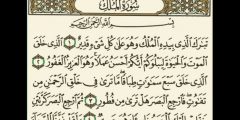 سُورَةُ الْمُلْكِ
بِسْمِ اللَّهِ الرَّحْمَٰنِ الرَّحِيمِ
تَبَٰرَكَ ٱلَّذِى بِيَدِهِ ٱلْمُلْكُ وَهُوَ عَلَىٰ كُلِّ شَىْءٍ قَدِيرٌ ١ ٱلَّذِى خَلَقَ
ٱلْمَوْتَ وَٱلْحَيَوٰةَ لِيَبْلُوَكُمْ أَيُّكُمْ أَحْسَنُ عَمَلًا وَهُوَ ٱلْعَزِيزُ ٱلْغَفُورُ ٢
ٱلَّذِى خَلَقَ سَبْعَ سَمَٰوَٰتٍ طِبَاقًا مَّا تَرَىٰ فِى خَلْقِ ٱلرَّحْمَٰنِ مِن
تَفَٰوُتٍ فَٱرْجِعِ ٱلْبَصَرَ هَلْ تَرَىٰ مِن فُطُورٍ ٣ ثُمَّ ٱرْجِعِ ٱلْبَصَرَ كَرَّتَيْنِ